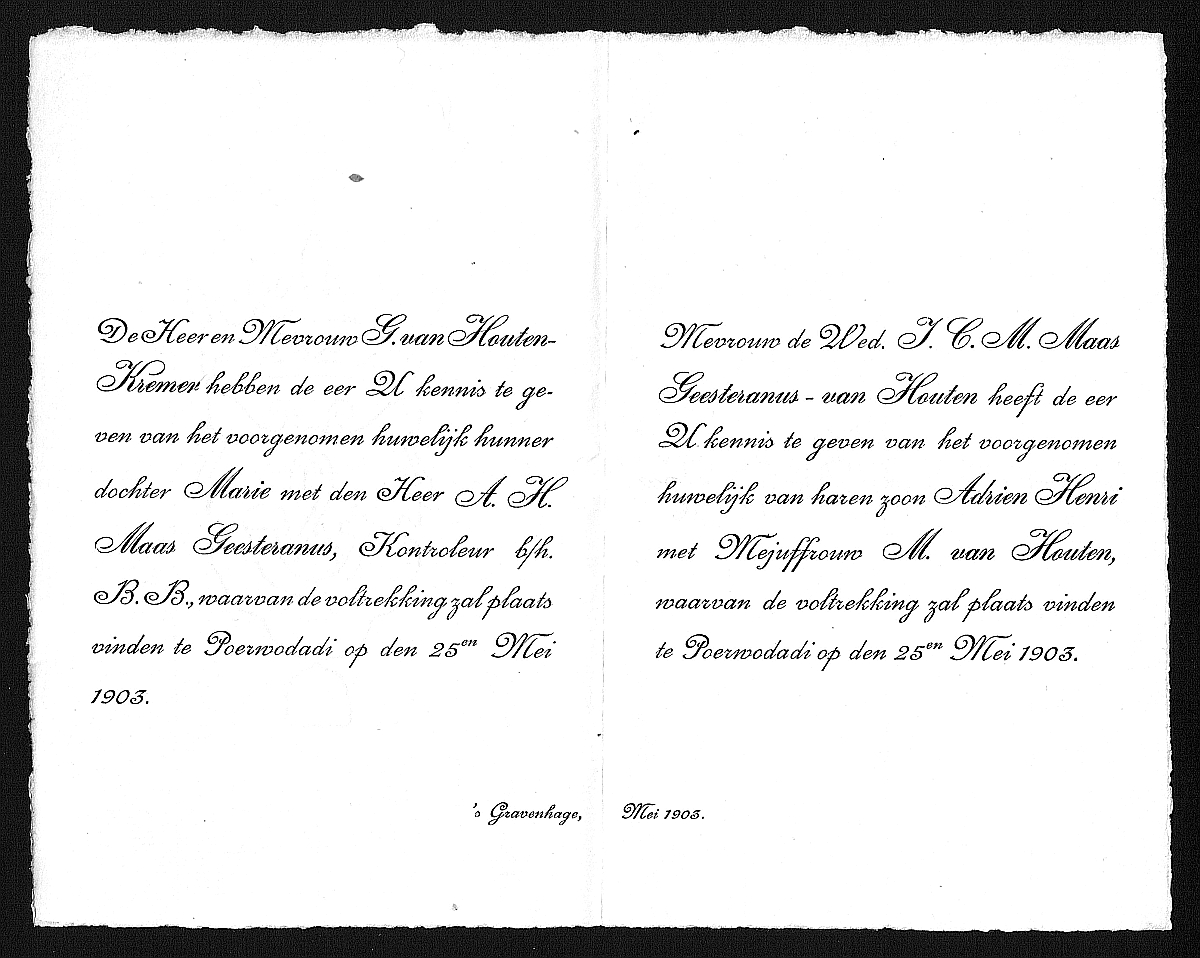 De Heer en Mevrouw G. van Houten-
Kremer hebben de eer U kennis te ge-
ven van het voorgenomen huwelijk hunner
dochter Marie met den Heer A. H.
Maas Geesteranus, Kontroleur b/h.
B. B., waarvan de voltrekking zal plaats
vinden te Poerwodadi op den 25en Mei
1903.
Mevrouw de Wed. J. C. M. Maas
Geesteranus - van Houten heeft de eer
U kennis te geven van het voorgenomen
huwelijk van haren zoon Adrien Henri
met Mejuffrouw M. van Houten,
waarvan de voltrekking zal plaats vinden
te Poerwodadi op den 25en Mei 1903.
's Gravenhage, Mei 1903.